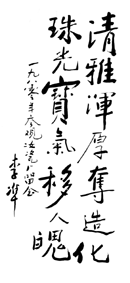 清雅渾厚奪造化
珠光寶氣移人魄
一九八〇年参观汝瓷厂留念
李準